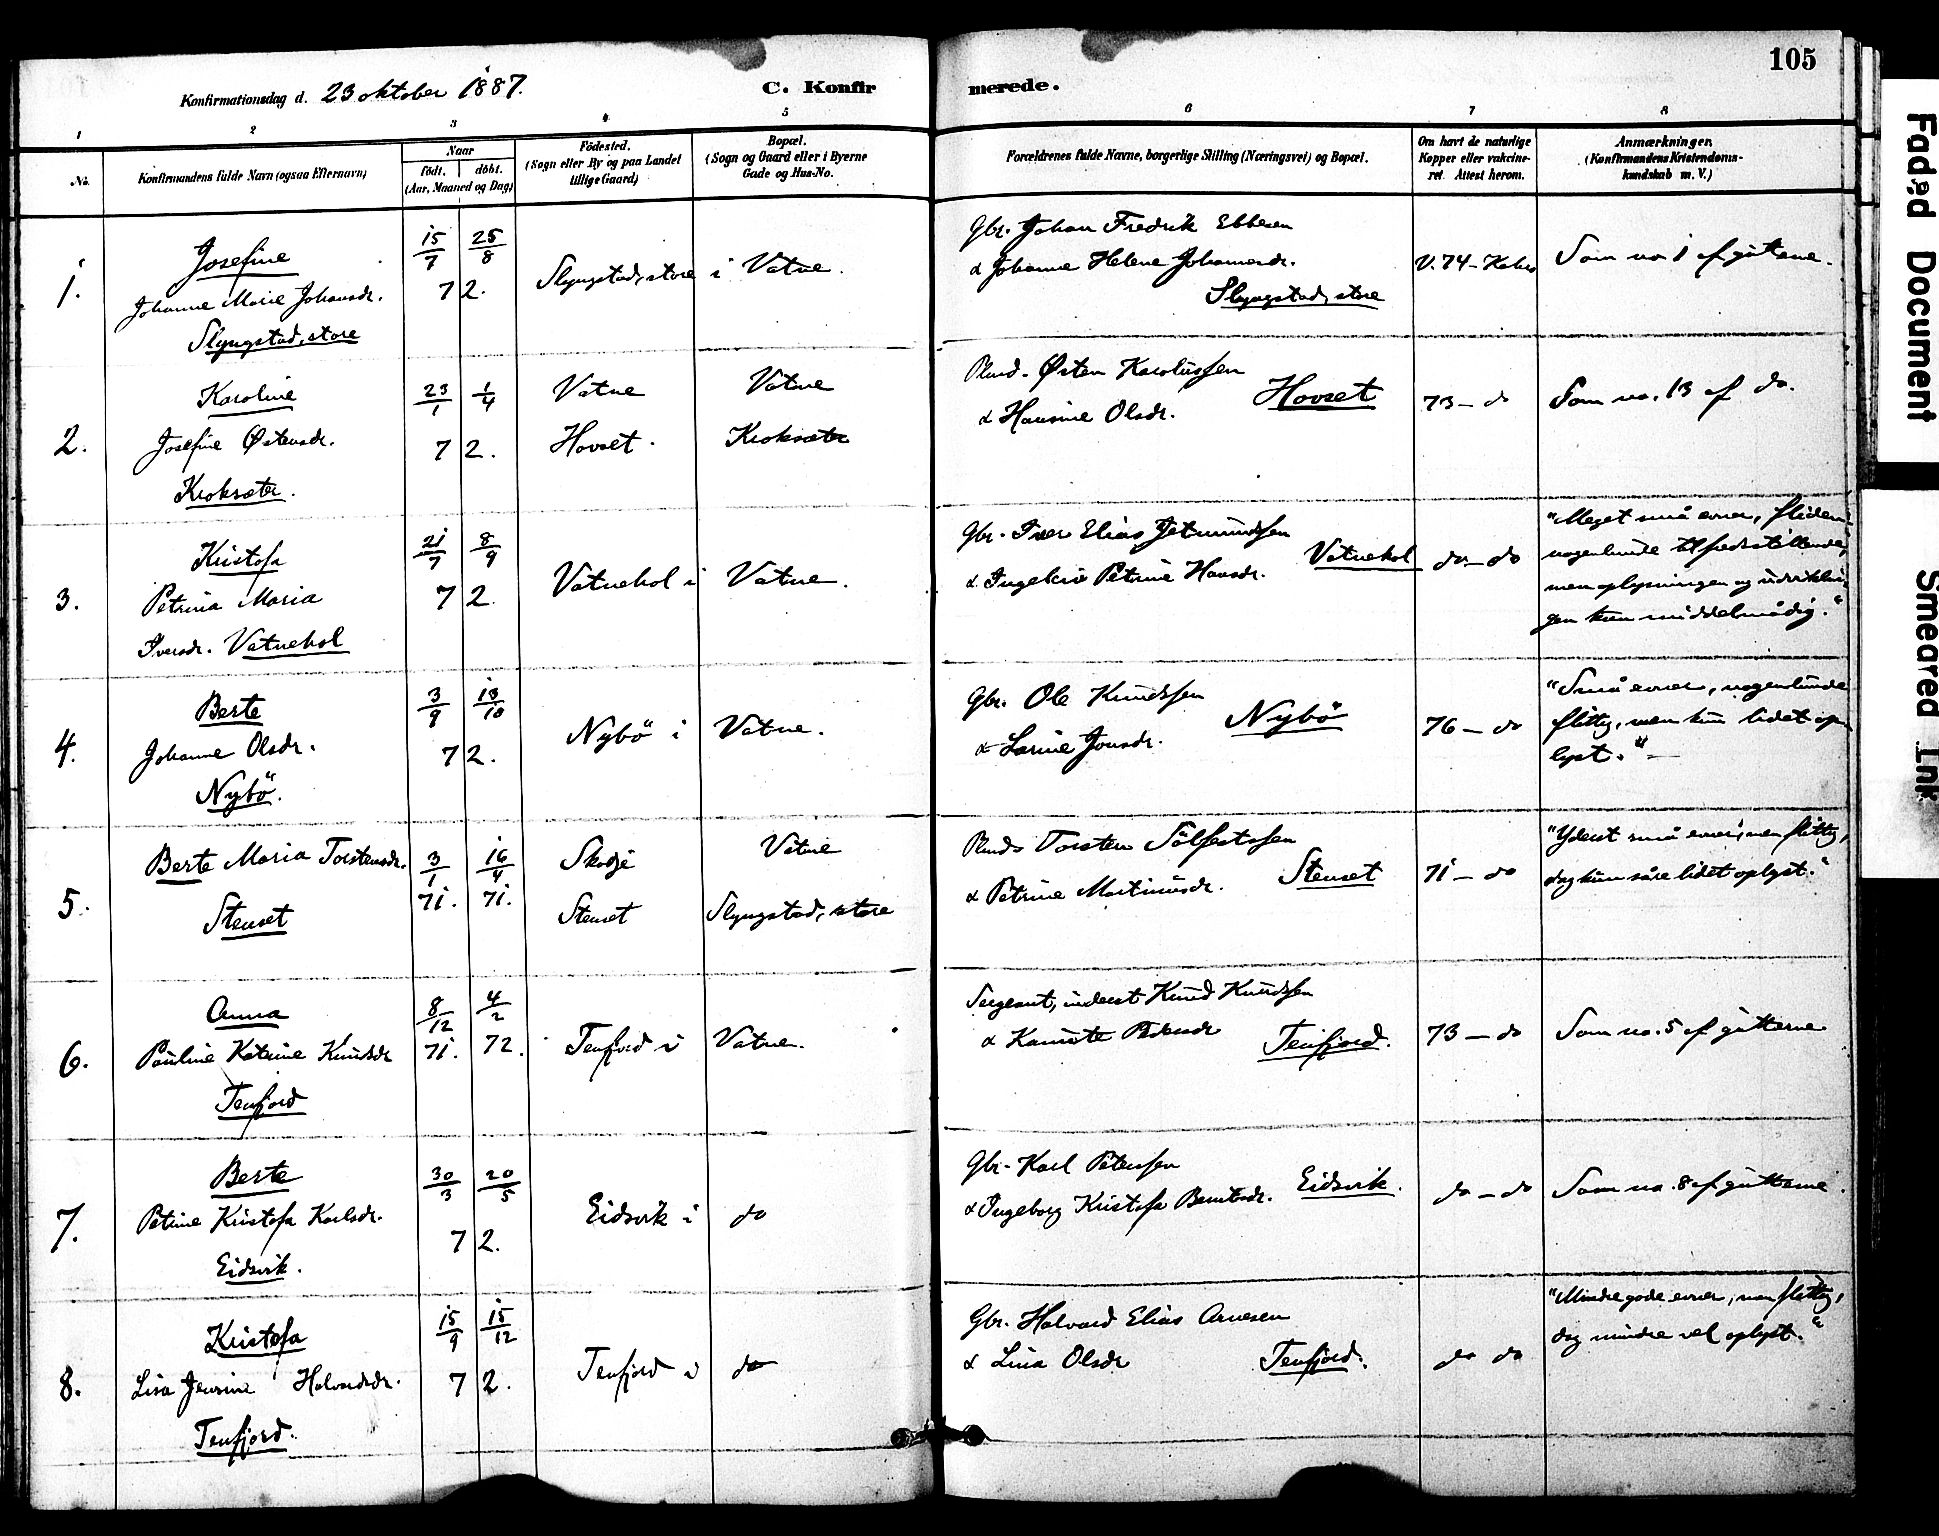 105
Konfirmationsdag d. 23 oktober 1887.
C. Konfirmerede.
1 2 3 4 5 6 7 8
No.
Konfirmandens fulde Navn (ogsaa Efternavn)
Naar
født. døbt.
(Aar, Maaned og Dag)
Födested.
(Sogn eller By og paa Landet
tillige Gaard)
Bopæl.
(Sogn og Gaard eller i Byerne
Gade og Hus-No.
Forældrenes fulde Navne, borgerlige Stilling (Næringsvei) og Bopæl.
Om havt de naturlige
Kopper eller vakcine-
ret. Attest herom.
Anmærkninger.
(Konfirmandens Kristendoms-
kundskab m. V.)
1.
Josefine
Johanne Marie Johansdr.
Slyngstad, store
15/7 25/8
72.
Slyngstad, store i
Vatne.
Gbr. Johan Fredrik Ebbesen
& Johanne Helene Johannesdr.
Slyngstad, store
V. 74 –
Som no. 1 af gutane.
2.
Karoline
Josefine Østensdr.
Kroksæter.
23/1 1/4
72.
Vatne
Hovset.
Vatne
Kroksæter
Østen Karolussen
& Hansine Olsdr.
Hovset
73 – do
Som no. 13 af do.
3.
Kristofa
Petrina Maria
Iversdr. Vatnehol
21/7 8/9
72.
Vatnehol i
Vatne.
Gbr. Iver Elias Jetmundssen
& Ingeborg Petrine Hansdr.
Vatnehol
do – do
"Meget små evner, fliden
nogenlunde tilfredsstillende,
men oplysningen og udviklin
gen kun middelmådig."
4.
Berte
Johanne Olsdr.
Nybö.
3/9 13/10
72.
Nybö i
Vatne.
Gbr. Ole Knudssen
& Larine Jonsdr.
Nybö
76 – do
"Små evner, nogenlunde
flittig, men kun lidet op
lyst."
5.
Berte Maria Torstensdr.
Stenset
3/1 16/4
71. 71.
Skodje
Stenset
Vatne
Slyngstad, store
Torsten Sölfestssen
& Petrine Martinusdr.
Stenset
71 – do
"Yderst små evner, men flittig,
dog kun såre lidet oplyst."
6.
Anna
Pauline Katrine Knudsdr
Tenfjord
8/12 4/2
71. 72.
Tenfjord i
Vatne.
Sergeant, inderst Knud Knudssen
& Pedersdr
Tenfjord.
73 – do
Som no. 5 af gutterne
7.
Berte
Petrine Kristofa Karlsdr.
Eidsvik.
30/3 20/5
72.
Eidsvik i
do
Gbr. Karl Petersen
& Ingeborg Kristofa Berntsdr.
Eidsvik.
do – do
Som no. 8 af gutterne.
8.
Kristofa
Lisa Jensine Halvardsdr.
Tenfjord.
15/9 15/12
72.
Tenfjord i
do
Gbr. Halvard Elias Arnesen
& Lina Olsdr
Tenfjord.
do do
"Mindre gode evner, men flittig,
dog mindre vel oplyst."
Faded Document
Smeared Ink